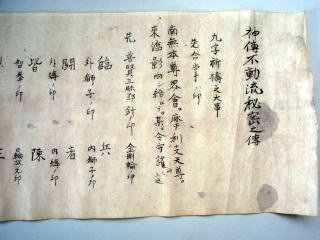 神傳不動流秘密之傳
九字祈禱之大事
先合掌ノ印
南無本尊界會 摩利支天尊
來臨影向シ給ヘ 某ヲ令守護
先 普賢三昧耶針印 金剛輪印
臨 兵
外獅子ノ印 内獅子ノ印
闘 者
外縛ノ印 内縛ノ印
皆 陳
智拳ノ印 日輪ノ印